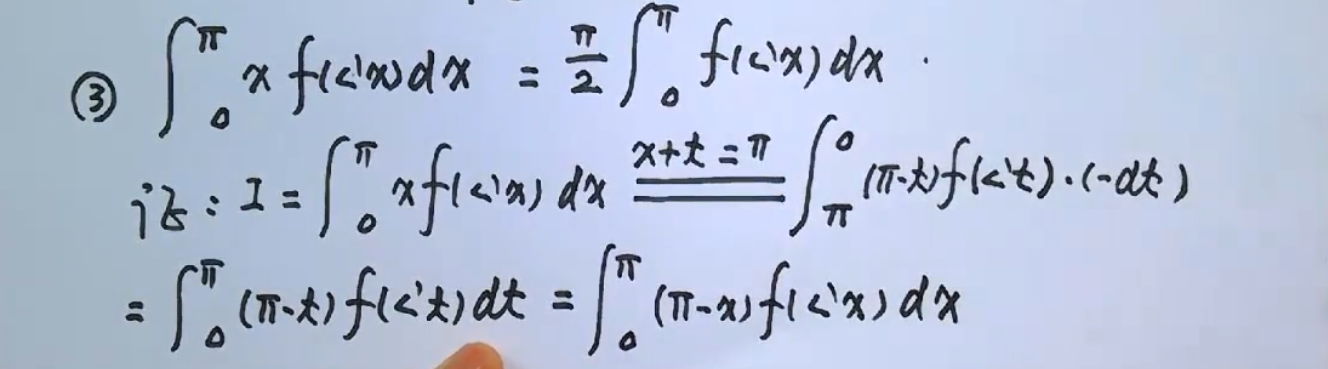 ③ ∫₀^π x f(sin x) dx = π/2 ∫₀^π f(sin x) dx .
证: I = ∫₀^π x f(sin x) dx x+t=π ∫_π^0 (π-t) f(sin t)·(-dt)
= ∫₀^π (π-t) f(sin t) dt = ∫₀^π (π-x) f(sin x) dx